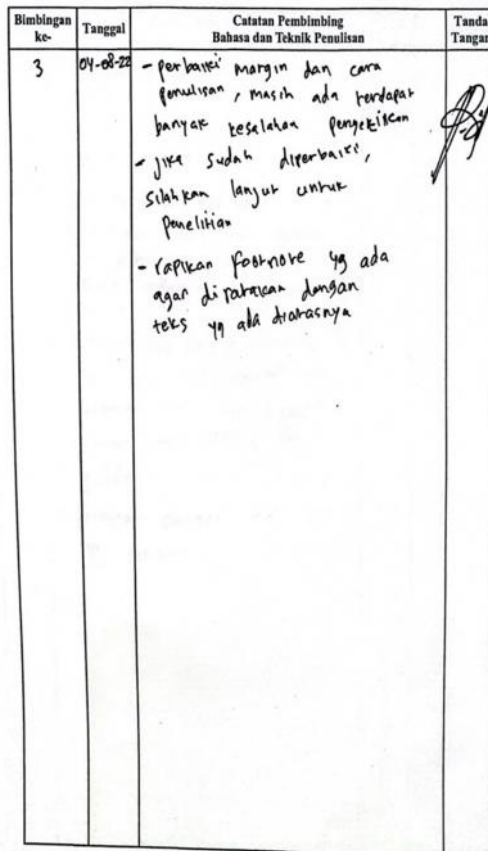 Bimbingan ke-
Tanggal
Catatan Pembimbing
Bahasa dan Teknik Penulisan
Tanda Tangan
3
04-08-22
- perbaiki margin dan cara
penulisan, masih ada terdapat
banyak kesalahan pengetikan
- jika sudah diperbaiki,
silahkan lanjut untuk
penelitian
- rapikan footnote yg ada
agar diratakan dengan
teks yg ada diatasnya